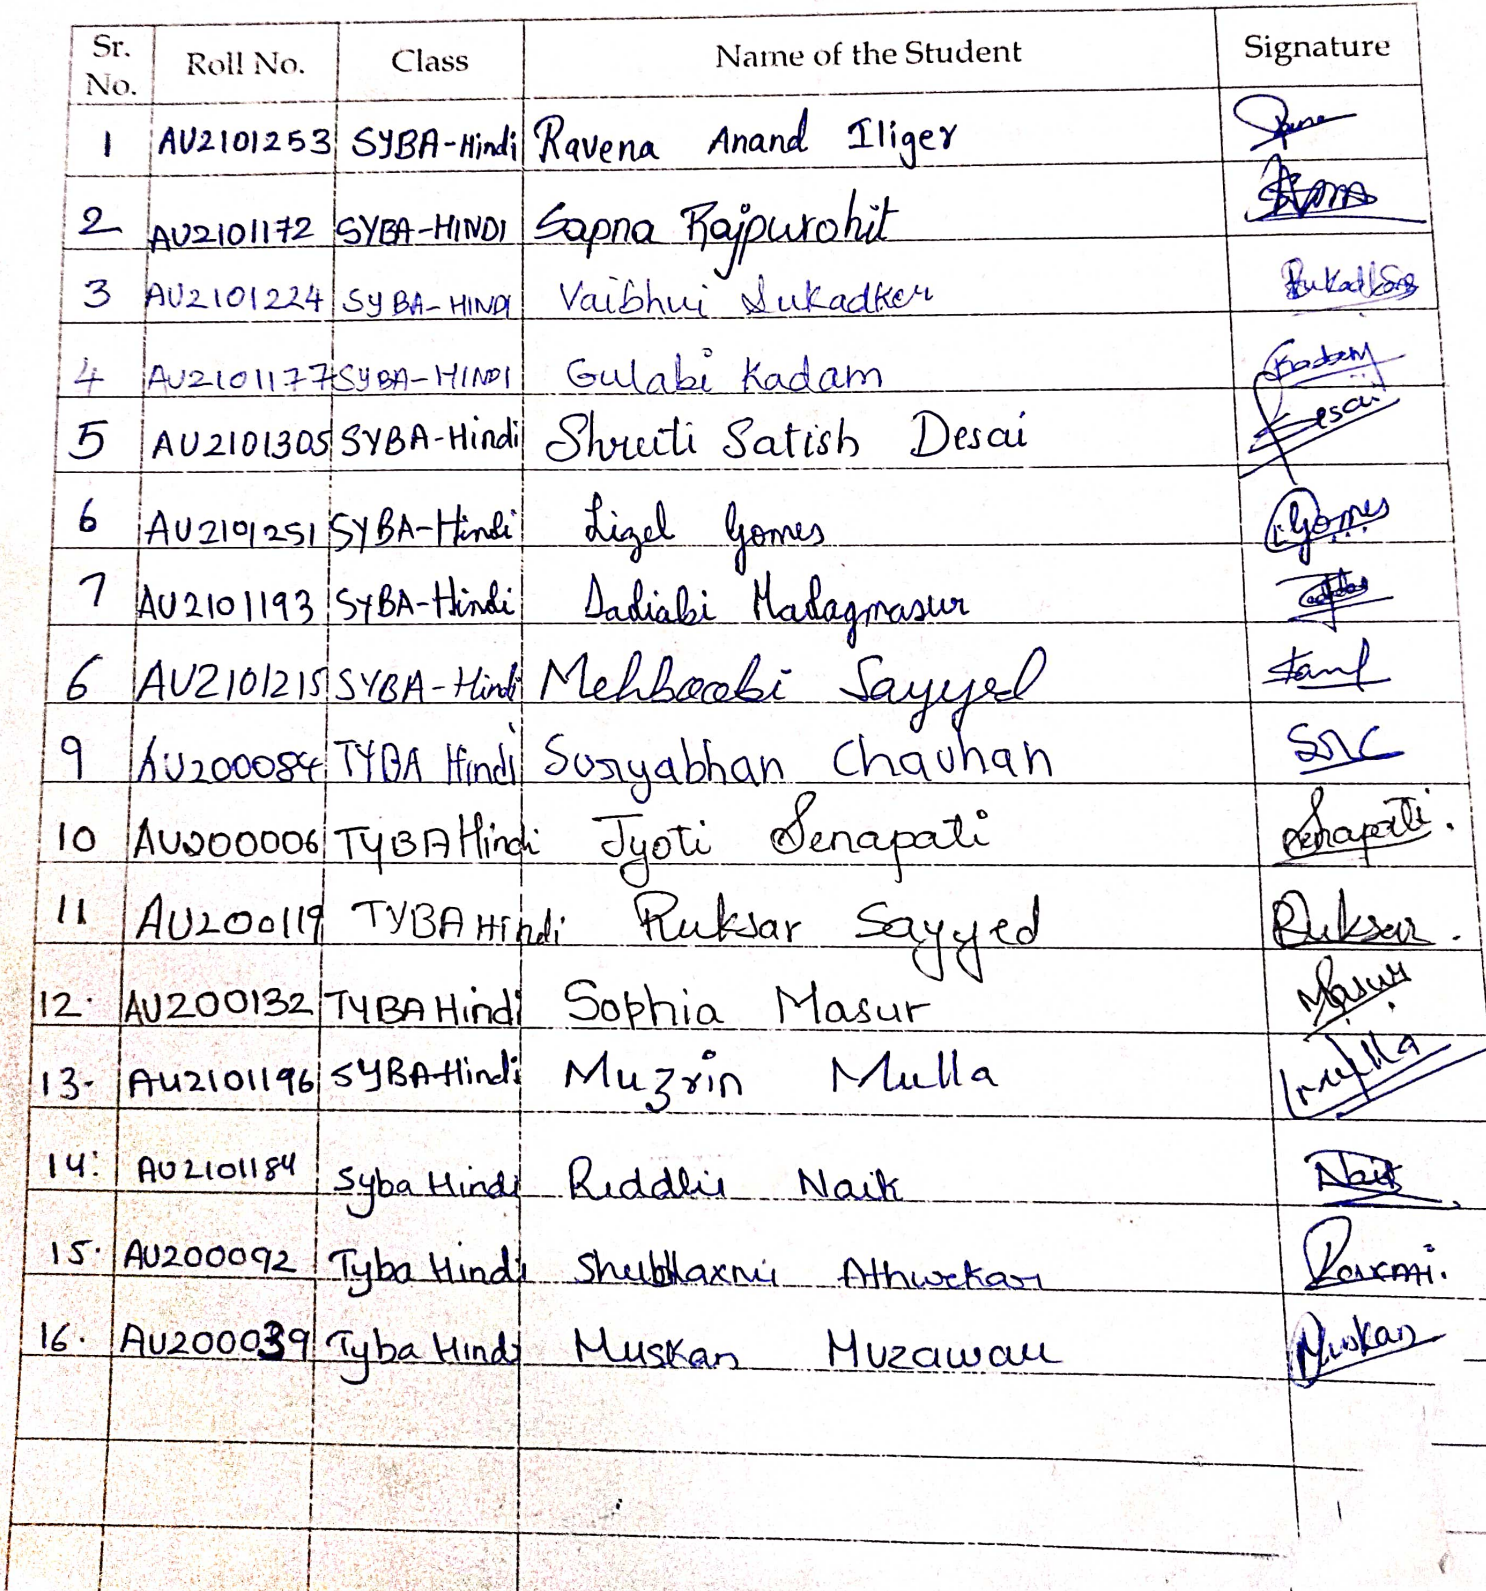 Sr. No. Roll No. Class Name of the Student Signature
1 AU2101253 SYBA-Hindi Ravena Anand Iliger
2 AU2101172 SYBA-HINDI Sapna Rajpurohit
3 AU2101224 SYBA-HINDI Vaibhui Sukadker
4 AU2101177 SYBA-HINDI Gulabi Kadam Kadam
5 AU2101305 SYBA-Hindi Shruti Satish Desai Desai
6 AU2101251 SYBA-Hindi Lizel Gomes Gomes
7 AU2101193 SYBA-Hindi Dadiabi Madagmasur
6 AU2101215 SYBA-Hindi Mehboobi Sayyed
9 AU200084 TYBA Hindi Suryabhan Chauhan SRC
10 AU200006 TYBA Hindi Jyoti Senapati Senapati.
11 AU200119 TYBA Hindi Ruksar Sayyed Ruksar.
12. AU200132 TYBA Hindi Sophia Masur Masur
13. AU2101196 SYBA Hindi Muzrin Mulla Mulla
14. AU2101184 Syba Hindi Riddhi Naik Naik
15. AU200092 Tyba Hindi Shubhlaxmi Athwekar
16. AU200039 Tyba Hindi Muskan Muzawar Muskan